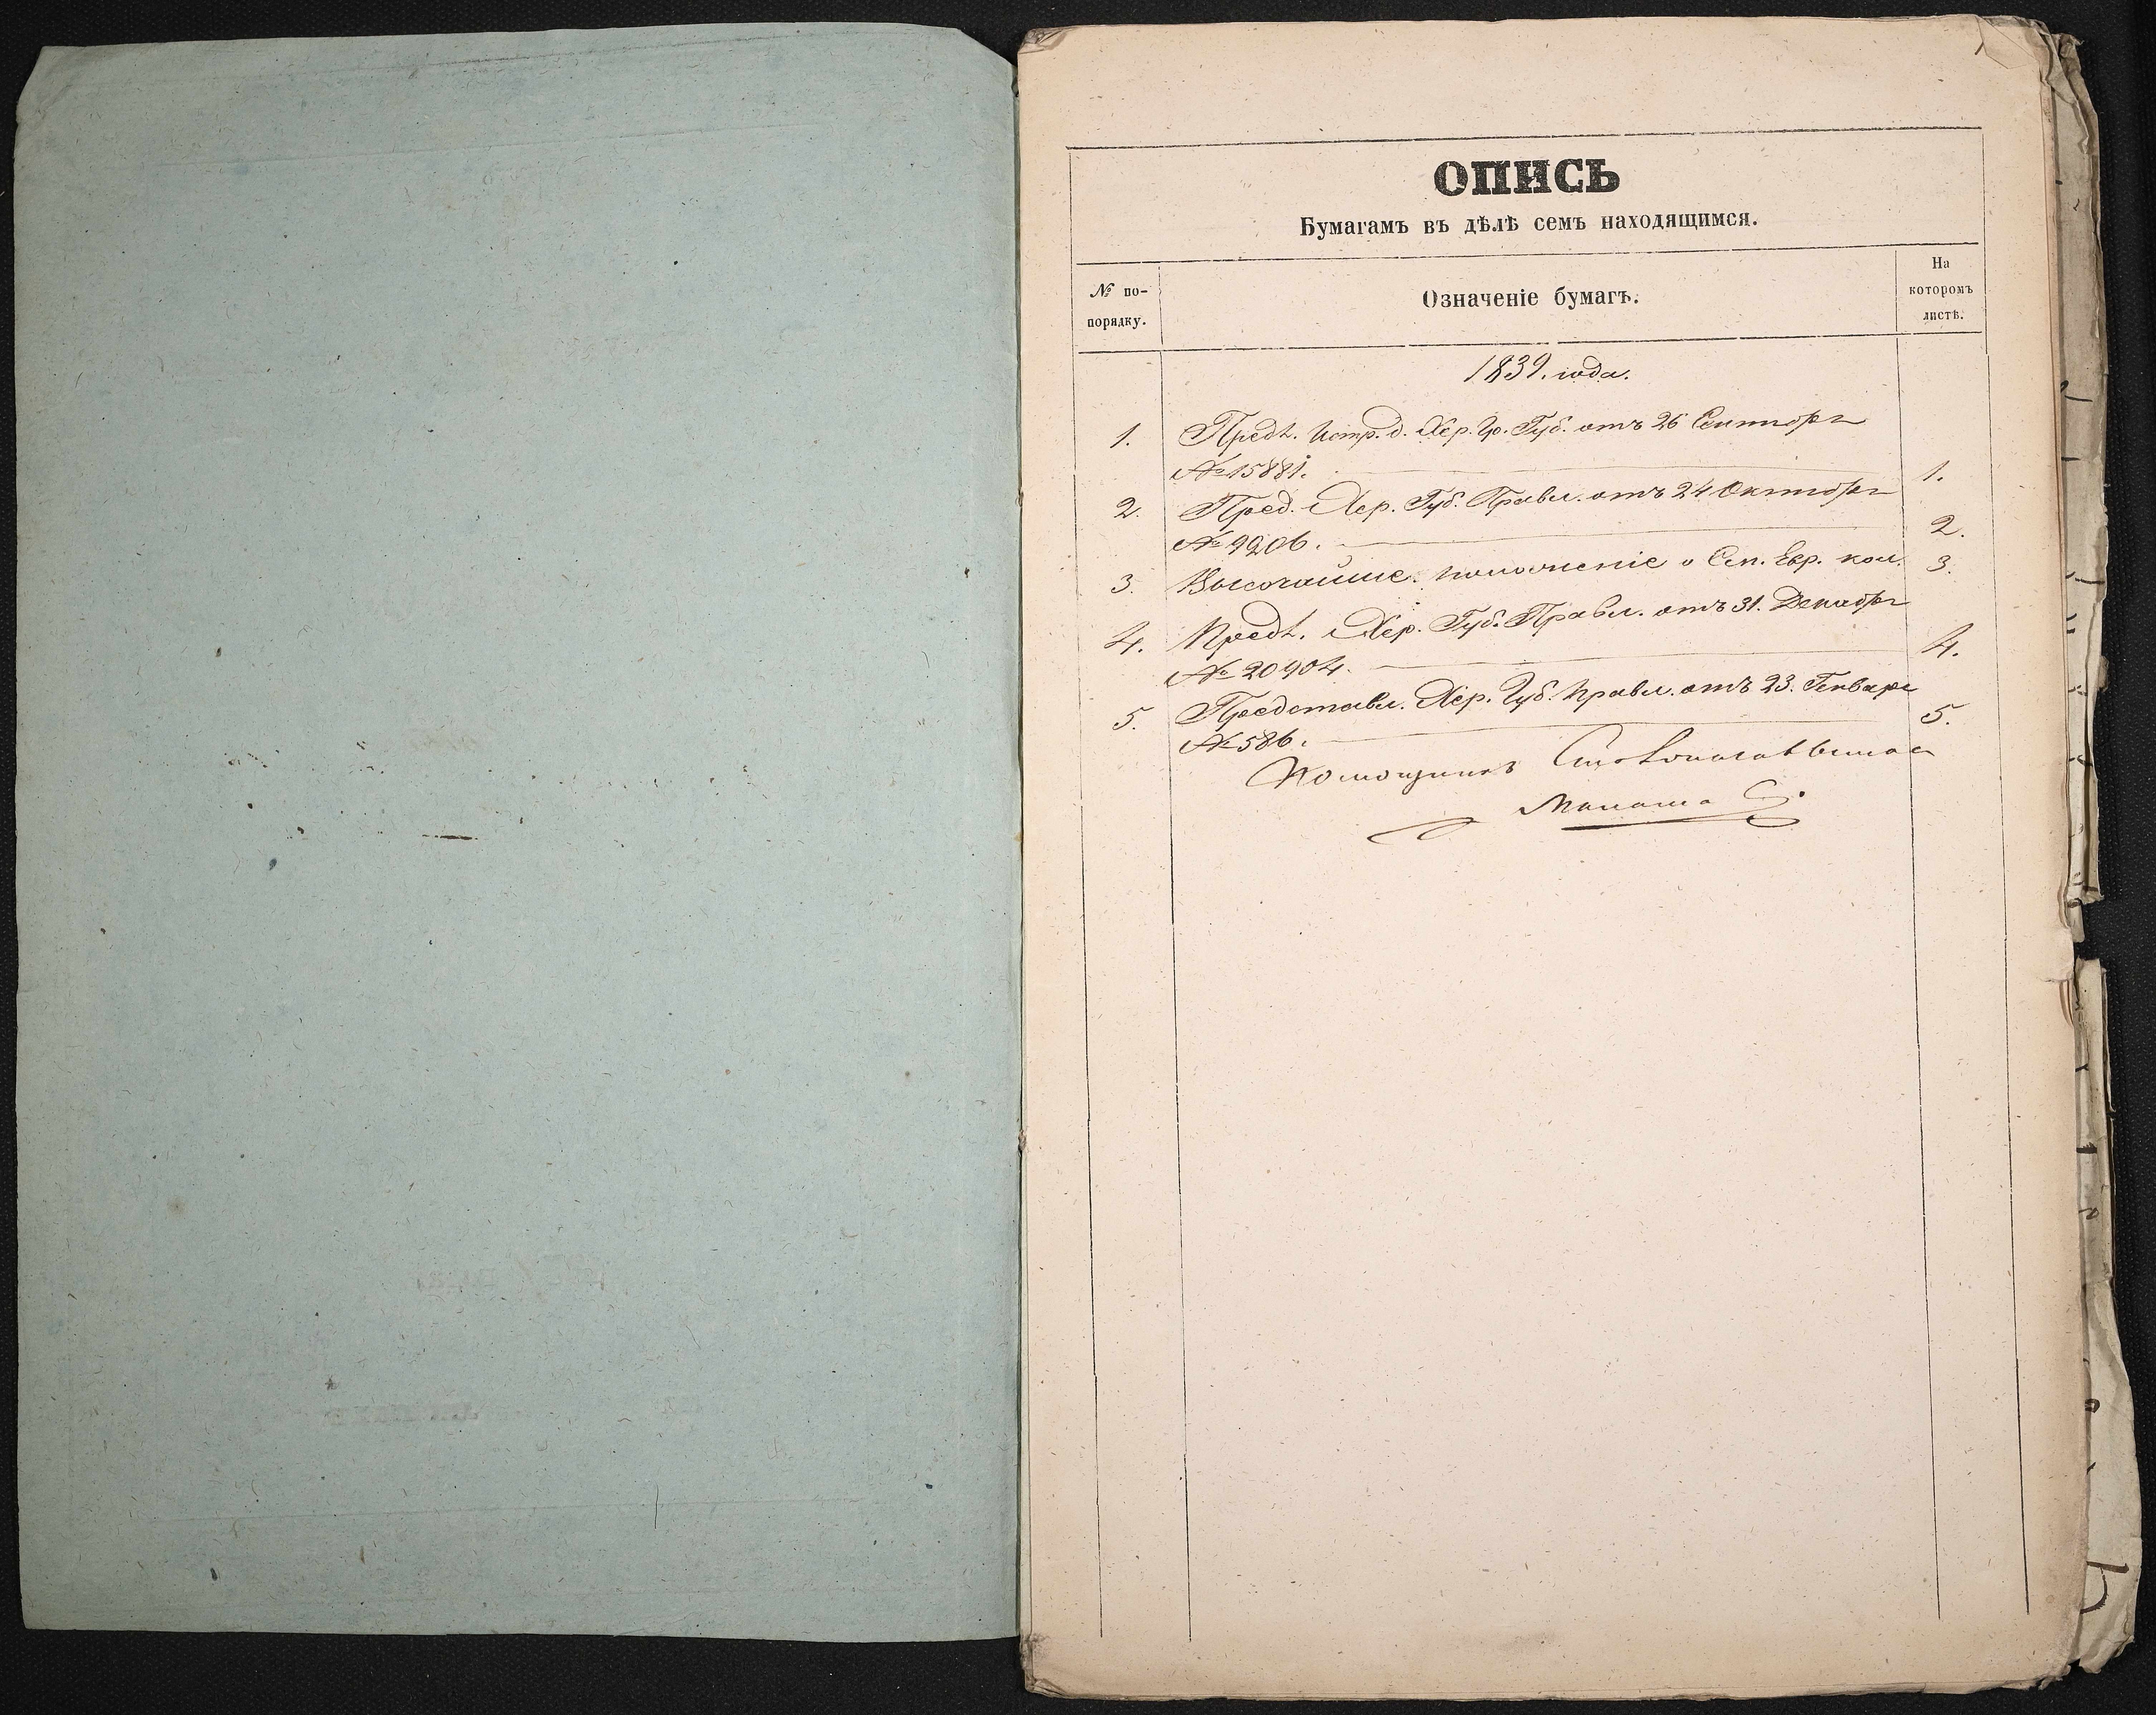 ОПИСЬ
Бумагамъ въ дѣлѣ семъ находящимся.
№ по-
порядку.
Означеніе бумагъ.
На
которомъ
листѣ.
1839. года.
1. Предл. Испр. д. Хер. Гр. Губ. отъ 26 Сентября
№ 15881. 1.
2. Пред. Хер. Губ. Правл. отъ 24 Октября
№ 9206. 2.
3. Высочайше. положеніе о Сел. Евр. кол. 3.
4. Предл. Хер. Губ. Правл. отъ 31. Декабря
№ 20904. 4.
5. Представл. Хер. Губ. Правл. отъ 23. Генваря
№ 586. 5.
Помощникъ Столоначальника